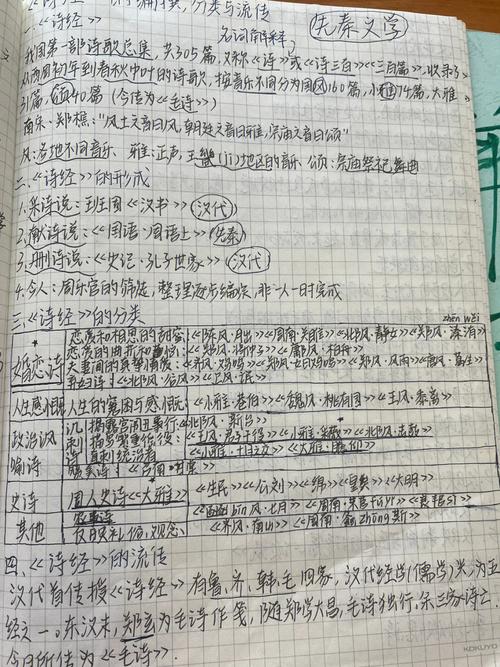 《诗经》 分类与流传
名词解释
先秦文学
我国第一部诗歌总集,共305篇,又称《诗》或《诗三百》《三百篇》,收录了
从西周初年到春秋中叶的诗歌,按音乐不同分为国风160篇,小雅74篇,大雅
31篇,颂40篇(今传为《毛诗》)
南宋·郑樵:"风土之音曰风,朝廷之音曰雅,宗庙之音曰颂"
风:各地不同音乐、 雅:正声,王畿(jī)地区的音乐、颂:宗庙祭祀舞曲
二、《诗经》的形成
1.采诗说:班固《汉书》(汉代)
2.献诗说:《国语·周语上》(先秦)
3.删诗说:《史记·孔子世家》(汉代)
4.今人:周乐官的筛选,整理逐步编纂,非一人一时完成
三、《诗经》的分类
zhēn wěi
婚恋诗
恋爱和相思的甜蜜:《陈风·月出》《周南·关雎》《邶风·静女》《郑风·溱洧》
《郑风·将仲子》《鄘风·柏舟》
《郑风·女曰鸡鸣》《郑风·风雨》《唐风·葛生》
弃妇诗:《邶风·谷风》《卫风·氓》
人生感慨 人生的窘困与感慨:《小雅·巷伯》《魏风·园有桃》《王风·黍离》
政治讽喻诗
《邶风·新台》
《王风·君子于役》《小雅·采薇》《邶风·击鼓》
《小雅·十月之交》《大雅·瞻卬》
史诗 周人史诗《大雅》 《生民》《公刘》《绵》《皇矣》《大明》
其他
bīn风·七月》《周南·芣苢fú yǐ》
反映礼俗、观念、 《齐风·南山》《周南·螽zhōng斯》
四、《诗经》的流传
汉代首传授《诗经》有鲁、齐、韩、毛四家,汉代经学(儒学)兴,为五
经之一。东汉末,郑玄为毛诗作笺,随郑学大昌,毛诗独行,余三家诗亡
今日所传为《毛诗》.
KOKUYO